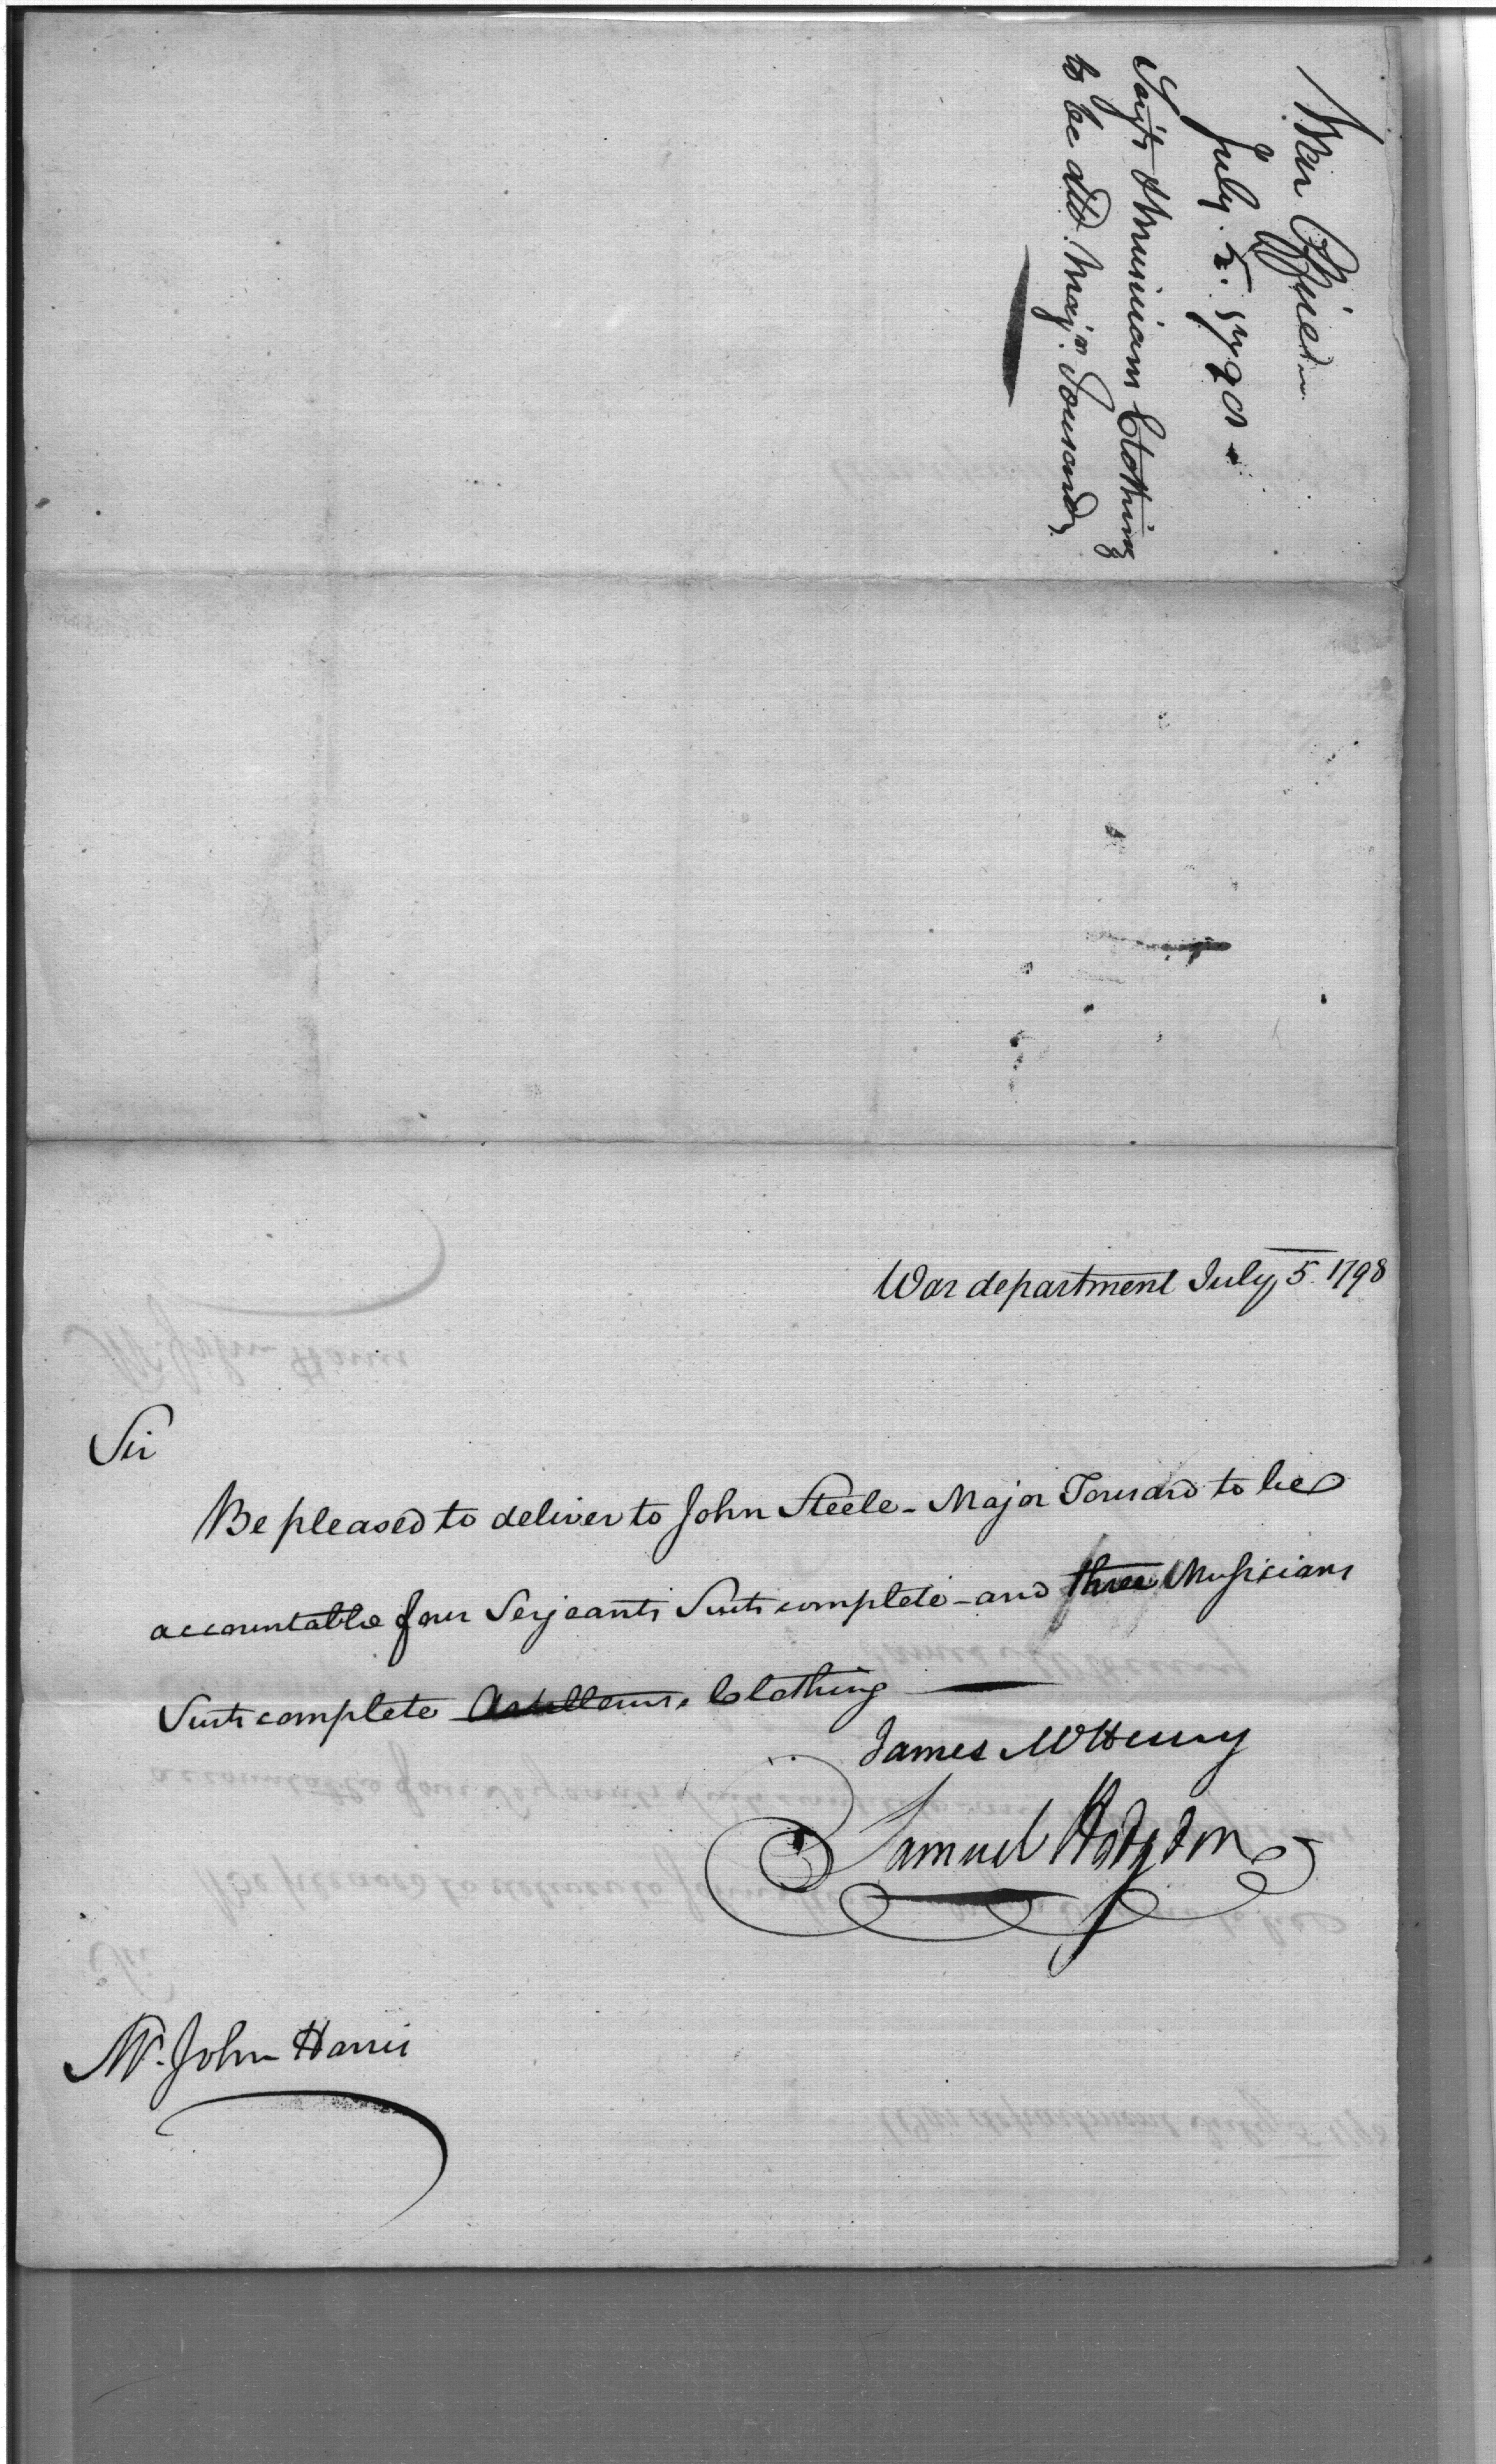 War Office
July. 5. 1798
Serjts & Musicians Clothing
to be dld. Majr. Tousard,
War department July 5 1798
Sir
Be pleased to deliver to John Steele - Major Tousard to be
accountable four Serjeants Suits complete - and three Musicians
Suits complete Artillerists Clothing
James McHenry
Samuel Hodgdon
Mr. John Harris